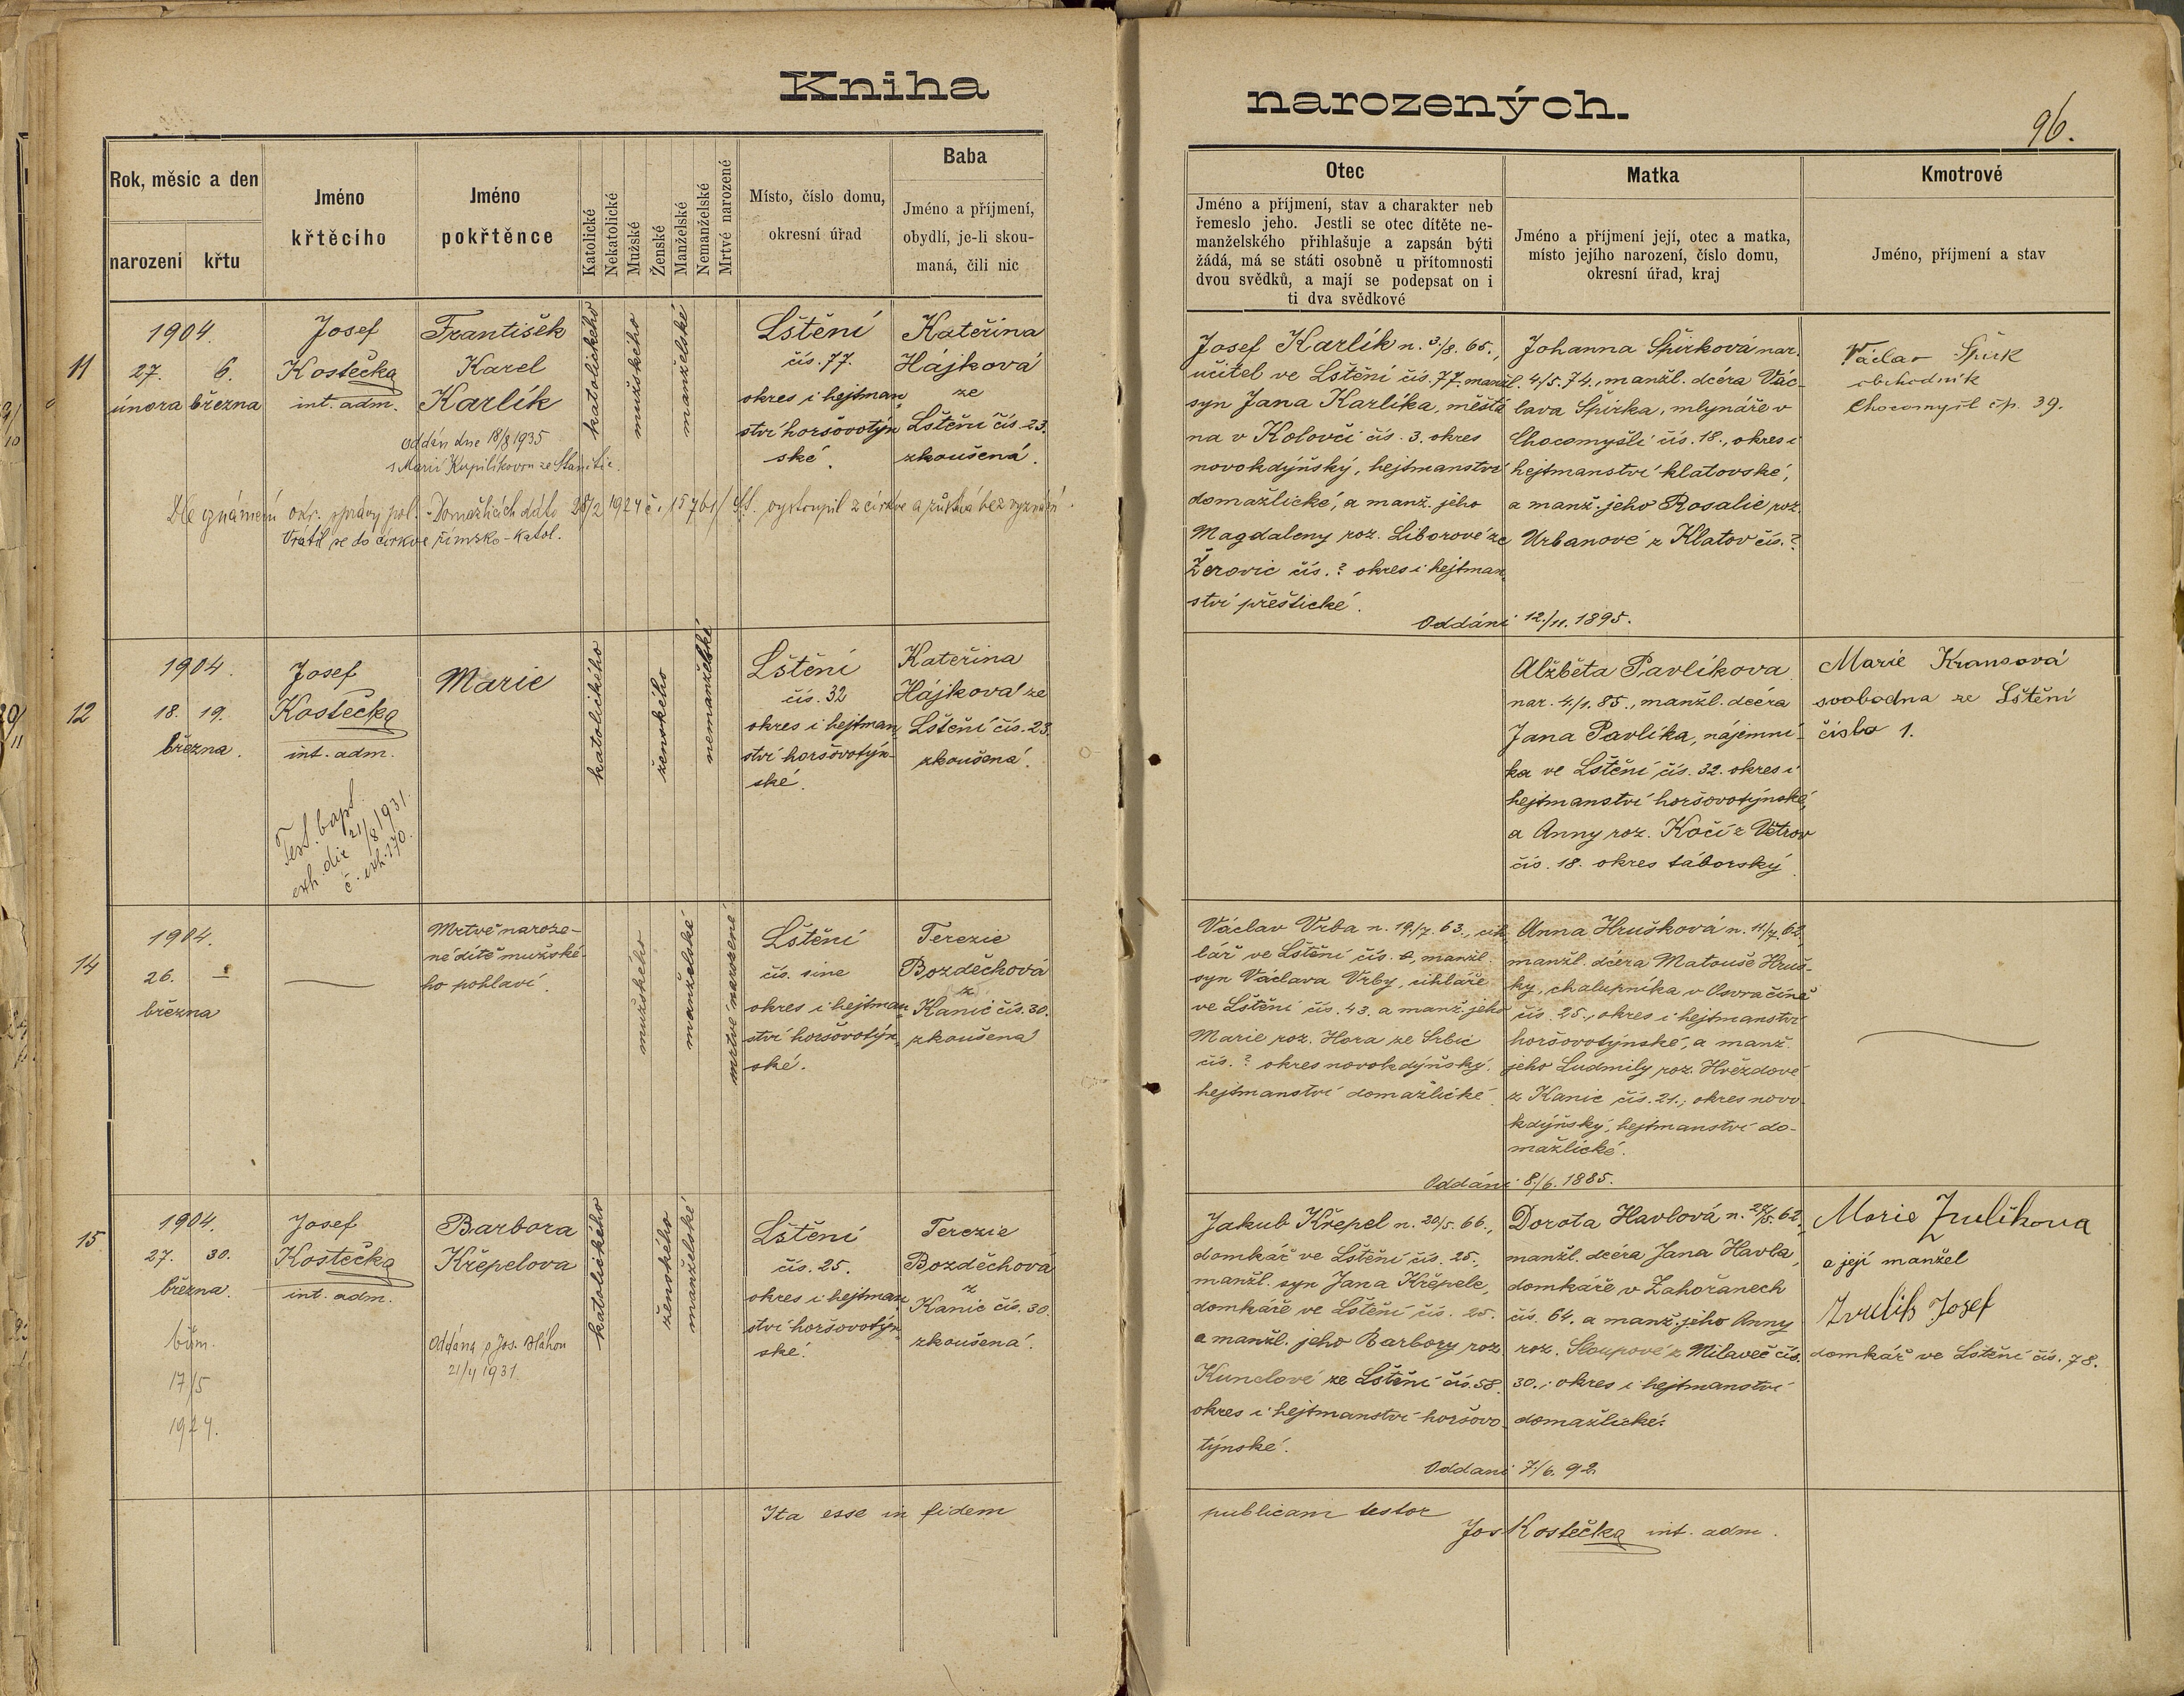 Kniha narozených.
96.
Rok, měsíc a den
narození
křtu
Jméno
křtěcího
Jméno
pokřtěnce
Katolické
Nekatolické
Mužské
Ženské
Manželské
Nemanželské
Mrtvé narozené
Místo, číslo domu,
okresní úřad
Baba
Jméno a příjmení,
obydlí, je-li skou-
maná, čili nic
Otec
Jméno a příjmení, stav a charakter neb
řemeslo jeho. Jestli se otec dítěte ne-
manželského přihlašuje a zapsán býti
žádá, má se státi osobně u přítomnosti
dvou svědků, a mají se podepsat on i
ti dva svědkové
Matka
Jméno a příjmení její, otec a matka,
místo jejího narození, číslo domu,
okresní úřad, kraj
Kmotrové
Jméno, příjmení a stav
11
1904.
27. 6.
února března
Josef
Kostečka
int. adm.
František
Karel
Karlík
Oddán dne 18/8 1935
s Marií Kupilíkovou ze Stanětic.
katolického
mužského
manželské
Lštění
čís. 77.
okres i hejtman
ství horšovotýn
ské.
Kateřina
Hájková
ze
Lštění čís. 23.
zkoušená.
Dle oznámení okr. správy pol. Domažlicích dáto 28/2 1924 č. 15761 vystoupil z církve a zůstává bez vyznání.
Vrátil se do církve římsko-katol.
Josef Karlík n. 3./8. 65.,
učitel ve Lštění čís. 77. manžl.
syn Jana Karlíka, měšťa
na v Kolovči čís. 3. okres
novokdýňský, hejtmanství
domažlické, a manž. jeho
Magdaleny roz. Liborové ze
Žerovic čís. ? okres i hejtman
ství přeštické.
Johanna Špirková nar.
4/5. 74., manžl. dcéra Vác-
lava Špirka, mlynáře v
Chocomyšli čís. 18., okres i
hejtmanství klatovské,
a manž. jeho Rosalie roz.
Urbanové z Klatov čís. ?
Oddáni 12./11. 1895.
Václav Špirk
obchodník
Chocomyšl čp. 39.
12
1904.
18. 19.
března.
Josef
Kostečka
int. adm.
Test. bapt.
exh. die 21/8 1931.
č. exh. 270.
Marie
katolického
ženského
nemanželské
Lštění
čís. 32
okres i hejtman
ství horšovotýn-
ské.
Kateřina
Hájková ze
Lštění čís. 23.
zkoušená.
Alžběta Pavlíkova
nar. 4/1. 85., manžl. dcéra
Jana Pavlíka, nájemní-
ka ve Lštění čís. 32. okres i
hejtmanství horšovotýnské,
a Anny roz. Kočí z Větrov
čís. 18. okres táborský
Marie Krausová
svobodna ze Lštění
číslo 1.
14
1904.
26. —
března
Mrtvě naroze-
né dítě mužské-
ho pohlaví.
mužského
manželské
mrtvé narozené
Lštění
čís. sine
okres i hejtman
ství horšovotýn
ské.
Terezie
Bozděchová
z
Kanic čís. 30.
zkoušená
Václav Vrba n. 19./7. 63., cih
lář ve Lštění čís. 0, manžl.
syn Václava Vrby, cihláře
ve Lštění čís. 43. a manž. jeho
Marie roz. Hora ze Srbic
čís. ? okres novokdýňský,
hejtmanství domažlické.
Anna Hrušková n. 11/7. 62,
manžl. dcéra Matouše Hruš-
ky, chalupníka v Osvračíně
čís. 25., okres i hejtmanství
horšovotýnské, a manž.
jeho Ludmily roz. Hvězdové
z Kanic čís. 21., okres novo-
kdýňský, hejtmanství do-
mažlické.
Oddáni 8./6. 1885.
15
1904.
27. 30.
března.
biřm.
17/5
1924.
Josef
Kostečka
int. adm.
Barbora
Křepelova
Oddána s Jos. Bláhou
21/4 1931.
katolického
ženského
manželské
Lštění
čís. 25.
okres i hejtman
ství horšovotýn
ské.
Terezie
Bozděchová
z
Kanic čís. 30.
zkoušená.
Jakub Křepel n. 20/5. 66.,
domkář ve Lštění čís. 25.,
manžl. syn Jana Křepele,
domkáře ve Lštění čís. 25.
a manžl. jeho Barbory roz
Kunclové ze Lštění čís. 58.
okres i hejtmanství horšovo
týnské.
Dorota Havlová n. 28/5. 62,
manžl. dcéra Jana Havla,
domkáře v Zahořanech
čís. 64. a manž. jeho Anny
roz. Sloupové z Milaveč čís.
30., okres i hejtmanství
domažlické.
Oddani 7./6. 92.
Marie Zulíkova
a její manžel
Josef
domkář ve Lštění čís. 78.
Ita esse in fidem publicam testor
Jos Kostečka int. adm.